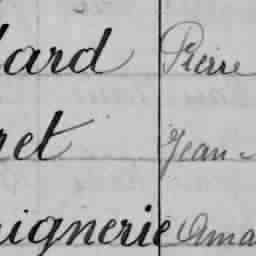 lard Pierre
ret Jean
ignerie Ama